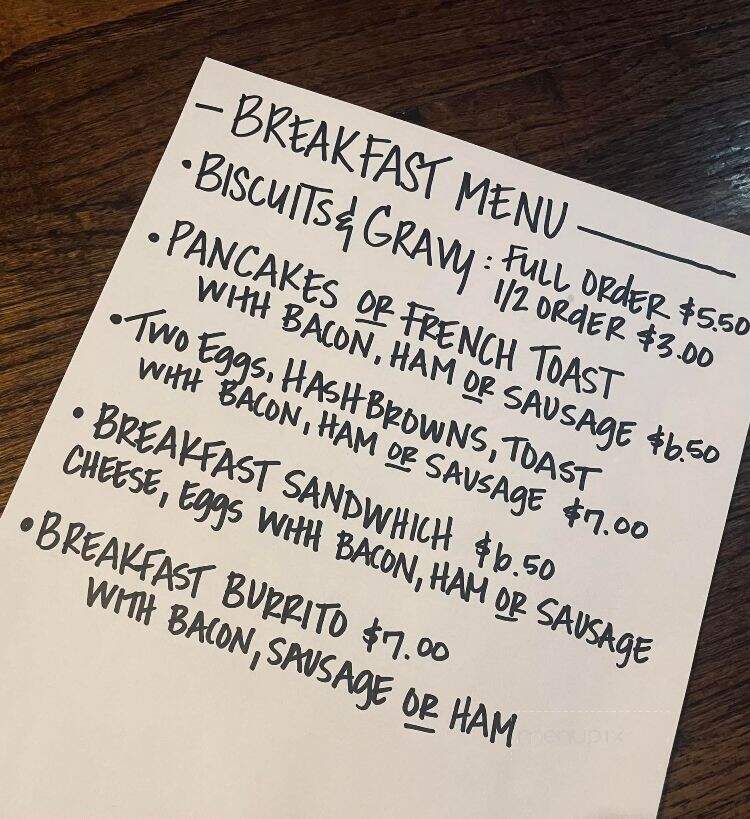 - BREAKFAST MENU -
• BISCUITS & GRAVY : FULL ORdER $5.50
1/2 ORdER $3.00
• PANCAKES OR FRENCH TOAST
WITH BACON, HAM OR SAUSAGE $6.50
• TWO EggS, HASHBROWNS, TOAST
WITH BACON, HAM OR SAUSAGE $7.00
• BREAKFAST SANDWHICH $6.50
CHEESE, EggS WITH BACON, HAM OR SAUSAGE
• BREAKFAST BURRITO $7.00
WITH BACON, SAUSAGE OR HAM
menupix